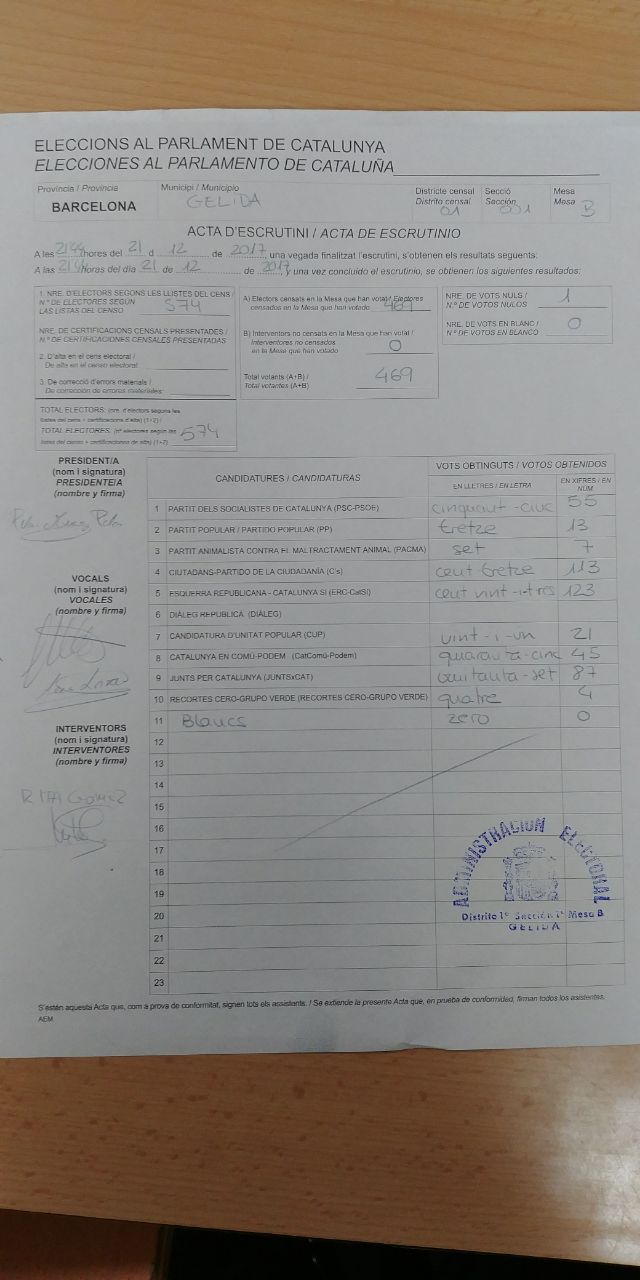 ELECCIONS AL PARLAMENT DE CATALUNYA
ELECCIONES AL PARLAMENTO DE CATALUÑA
Província / Provincia
BARCELONA
Municipi / Municipio
GELIDA
Districte censal
Distrito censal
01
Secció
Sección
001
Mesa
Mesa B
ACTA D'ESCRUTINI / ACTA DE ESCRUTINIO
A les 21'44 hores del 21 d 12 de 2017, una vegada finalitzat l'escrutini, s'obtenen els resultats seguents:
A las 21'44 horas del día 21 de 12 de 2017, y una vez concluido el escrutinio, se obtienen los siguientes resultados:
1. NRE. D'ELECTORS SEGONS LES LLISTES DEL CENS /
N.º DE ELECTORES SEGÚN
LAS LISTAS DEL CENSO
574
NRE. DE CERTIFICACIONS CENSALS PRESENTADES /
N.º DE CERTIFICACIONES CENSALES PRESENTADAS
2. D'alta en el cens electoral /
De alta en el censo electoral:
3. De correcció d'errors materials /
De corrección de errores materiales:
TOTAL ELECTORS: (nre. d'electors segons les
llistes del cens + certificacions d'alta) (1+2) /
TOTAL ELECTORES: (nº electores según las
listas del censo + certificaciones de alta) (1+2)
574
A) Electors censats en la Mesa que han votat / Electores
censados en la Mesa que han votado
469
B) Interventors no censats en la Mesa que han votat /
Interventores no censados
en la Mesa que han votado
0
Total votants (A+B) /
Total votantes (A+B)
469
NRE. DE VOTS NULS /
N.º DE VOTOS NULOS
1
NRE. DE VOTS EN BLANC /
N.º DE VOTOS EN BLANCO
0
PRESIDENT/A
(nom i signatura)
PRESIDENTE/A
(nombre y firma)
VOCALS
(nom i signatura)
VOCALES
(nombre y firma)
INTERVENTORS
(nom i signatura)
INTERVENTORES
(nombre y firma)
RITA GOMEZ
CANDIDATURES / CANDIDATURAS
VOTS OBTINGUTS / VOTOS OBTENIDOS
EN LLETRES / EN LETRA
EN XIFRES / EN NÚM
1 PARTIT DELS SOCIALISTES DE CATALUNYA (PSC-PSOE) cinquant-cinc 55
2 PARTIT POPULAR / PARTIDO POPULAR (PP) tretze 13
3 PARTIT ANIMALISTA CONTRA EL MALTRACTAMENT ANIMAL (PACMA) set 7
4 CIUTADANS-PARTIDO DE LA CIUDADANÍA (C's) cent tretze 113
5 ESQUERRA REPUBLICANA - CATALUNYA SÍ (ERC-CatSí) cent vint-i-tres 123
6 DIÀLEG REPUBLICÀ (DIÀLEG)
7 CANDIDATURA D'UNITAT POPULAR (CUP) vint-i-un 21
8 CATALUNYA EN COMÚ-PODEM (CatComú-Podem) quaranta-cinc 45
9 JUNTS PER CATALUNYA (JUNTSxCAT) vuitanta-set 87
10 RECORTES CERO-GRUPO VERDE (RECORTES CERO-GRUPO VERDE) quatre 4
11 Blancs zero 0
12
13
14
15
16
17
18
19
20
21
22
23
ADMINISTRACION ELECTORAL
Distrito 1º Sección 1ª Mesa B
GELIDA
S'estén aquesta Acta que, com a prova de conformitat, signen tots els assistents. / Se extiende la presente Acta que, en prueba de conformidad, firman todos los asistentes.
AEM